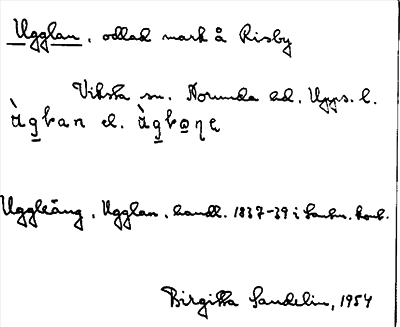 Ugglan, odlad mark å Risby
Viksta sn. Norunda hd. Upps. l.
el.
Uggleäng, Ugglan, handl. 1837-39 i Lantm. kont.
Birgitta Sandelin, 1954